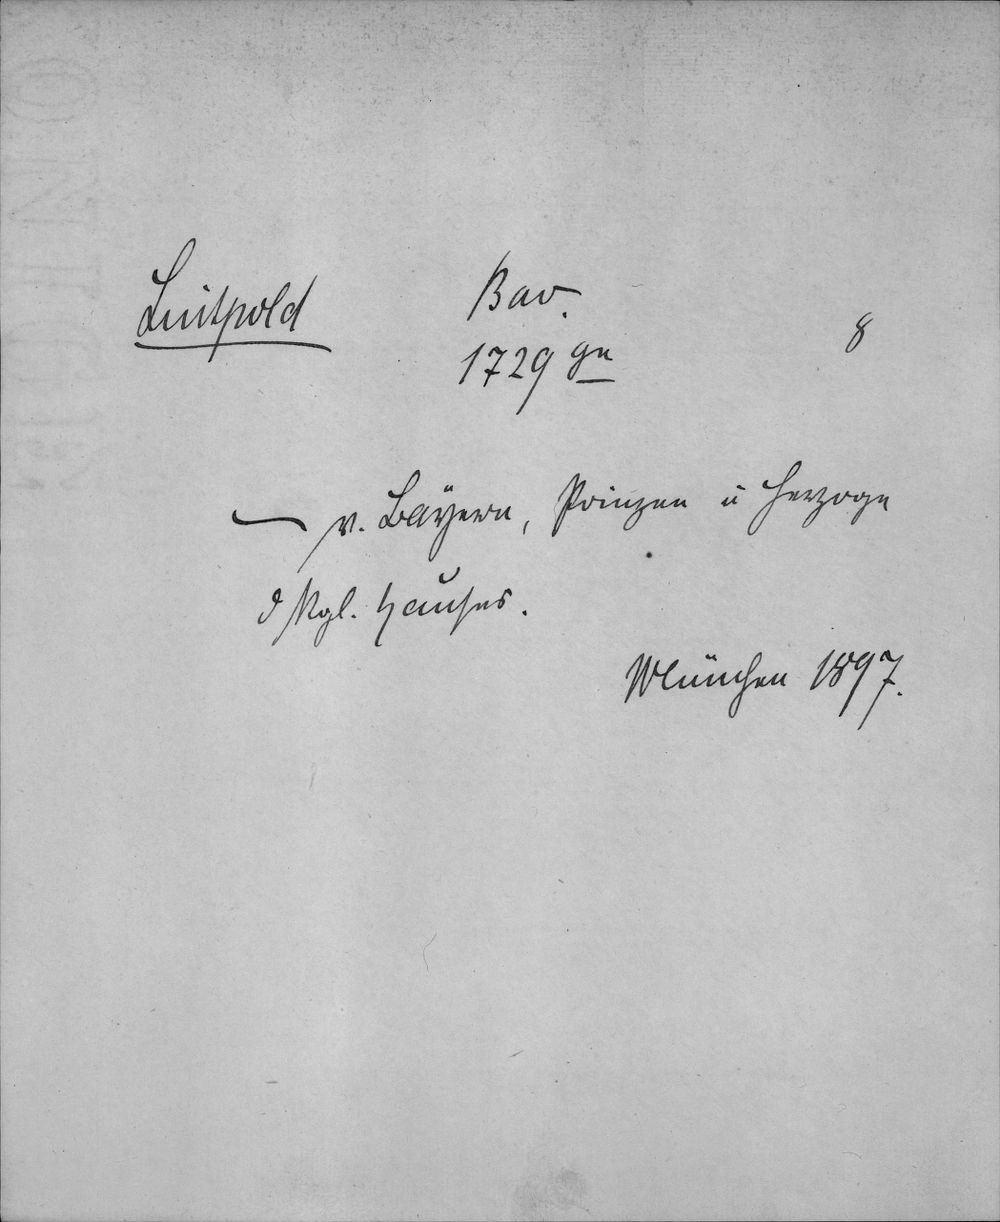 Luitpold
Bav.
1729 gn
8
— v. Bayern, Prinzen u Herzoge
d Kgl. Hauses.
München 1897.